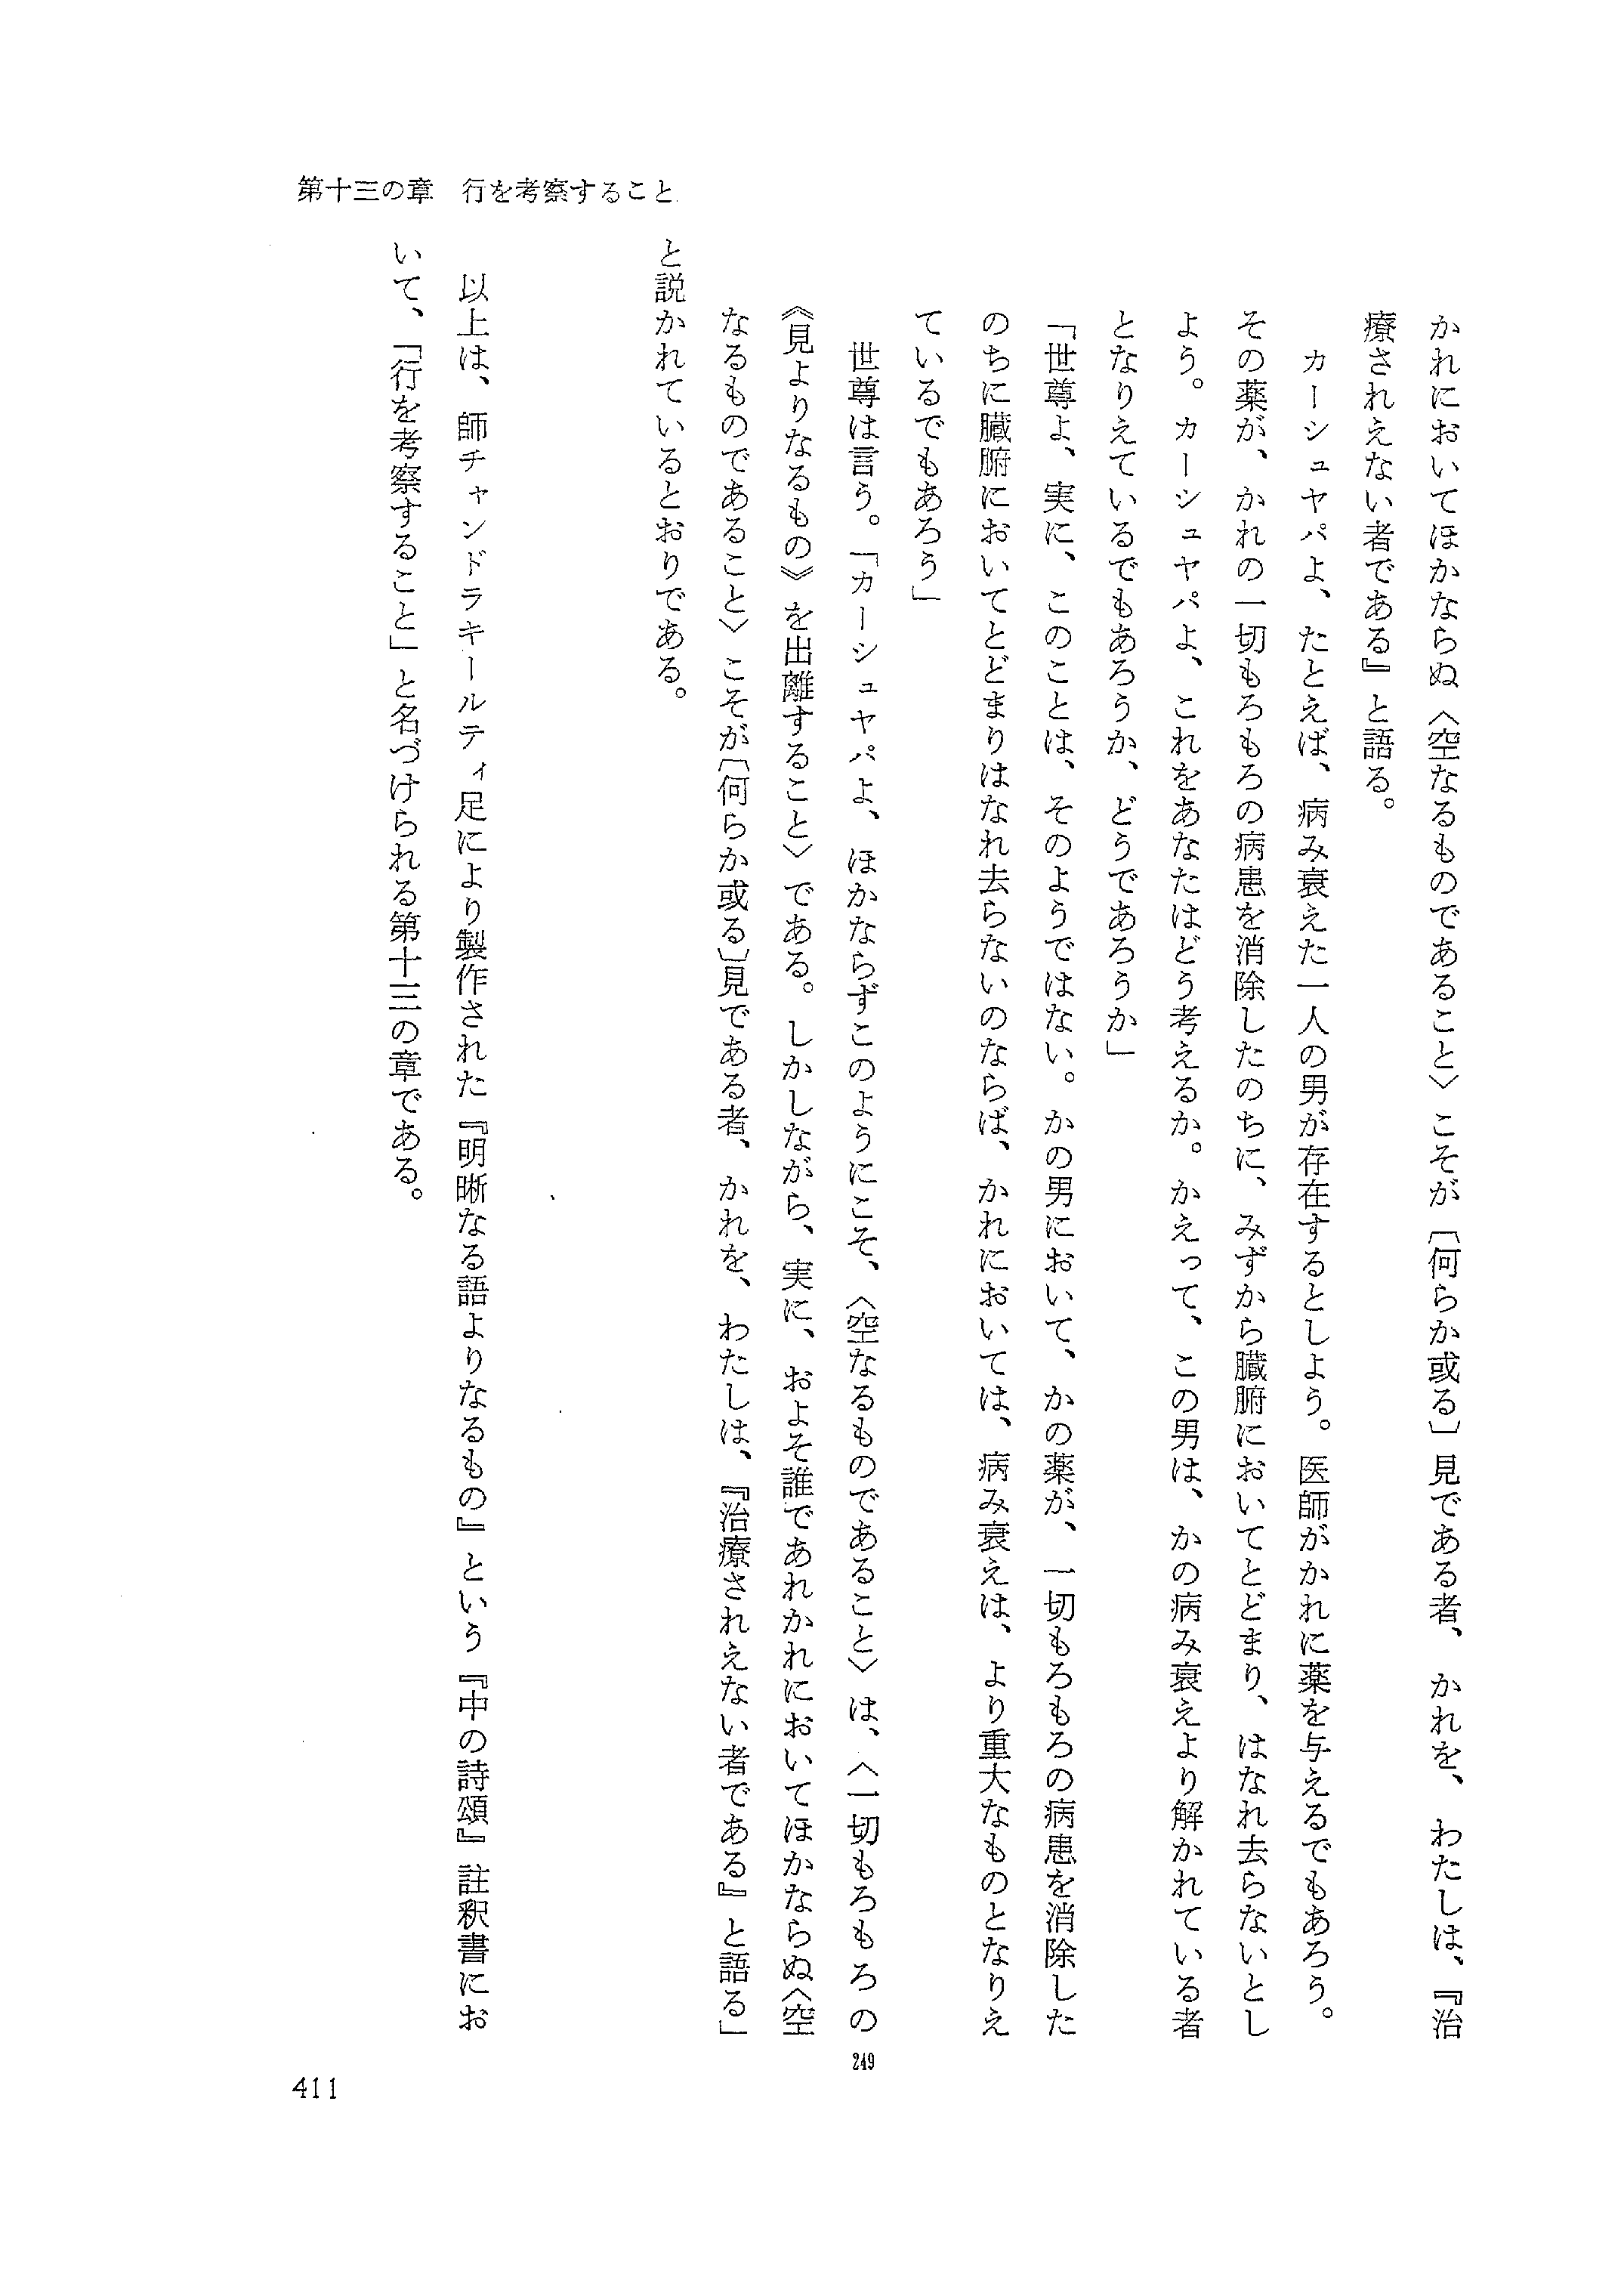 第十三の章　行を考察すること
かれにおいてほかならぬ〈空なるものであること〉こそが〔何らか或る〕見である者、かれを、わたしは、『治
療されえない者である』と語る。
カーシュヤパよ、たとえば、病み衰えた一人の男が存在するとしよう。医師がかれに薬を与えるでもあろう。
その薬が、かれの一切もろもろの病患を消除したのちに、みずから臓腑においてとどまり、はなれ去らないとし
よう。カーシュヤパよ、これをあなたはどう考えるか。かえって、この男は、かの病み衰えより解かれている者
となりえているでもあろうか、どうであろうか」
「世尊よ、実に、このことは、そのようではない。かの男において、かの薬が、一切もろもろの病患を消除した
のちに臓腑においてとどまりはなれ去らないのならば、かれにおいては、病み衰えは、より重大なものとなりえ
ているでもあろう」
世尊は言う。「カーシュヤパよ、ほかならずこのようにこそ、〈空なるものであること〉は、〈一切もろもろの
249
《見よりなるもの》を出離すること〉である。しかしながら、実に、およそ誰であれかれにおいてほかならぬ〈空
なるものであること〉こそが〔何らか或る〕見である者、かれを、わたしは、『治療されえない者である』と語る」
と説かれているとおりである。
以上は、師チャンドラキールティ足により製作された『明晰なる語よりなるもの』という『中の詩頌』註釈書にお
いて、「行を考察すること」と名づけられる第十三の章である。
411